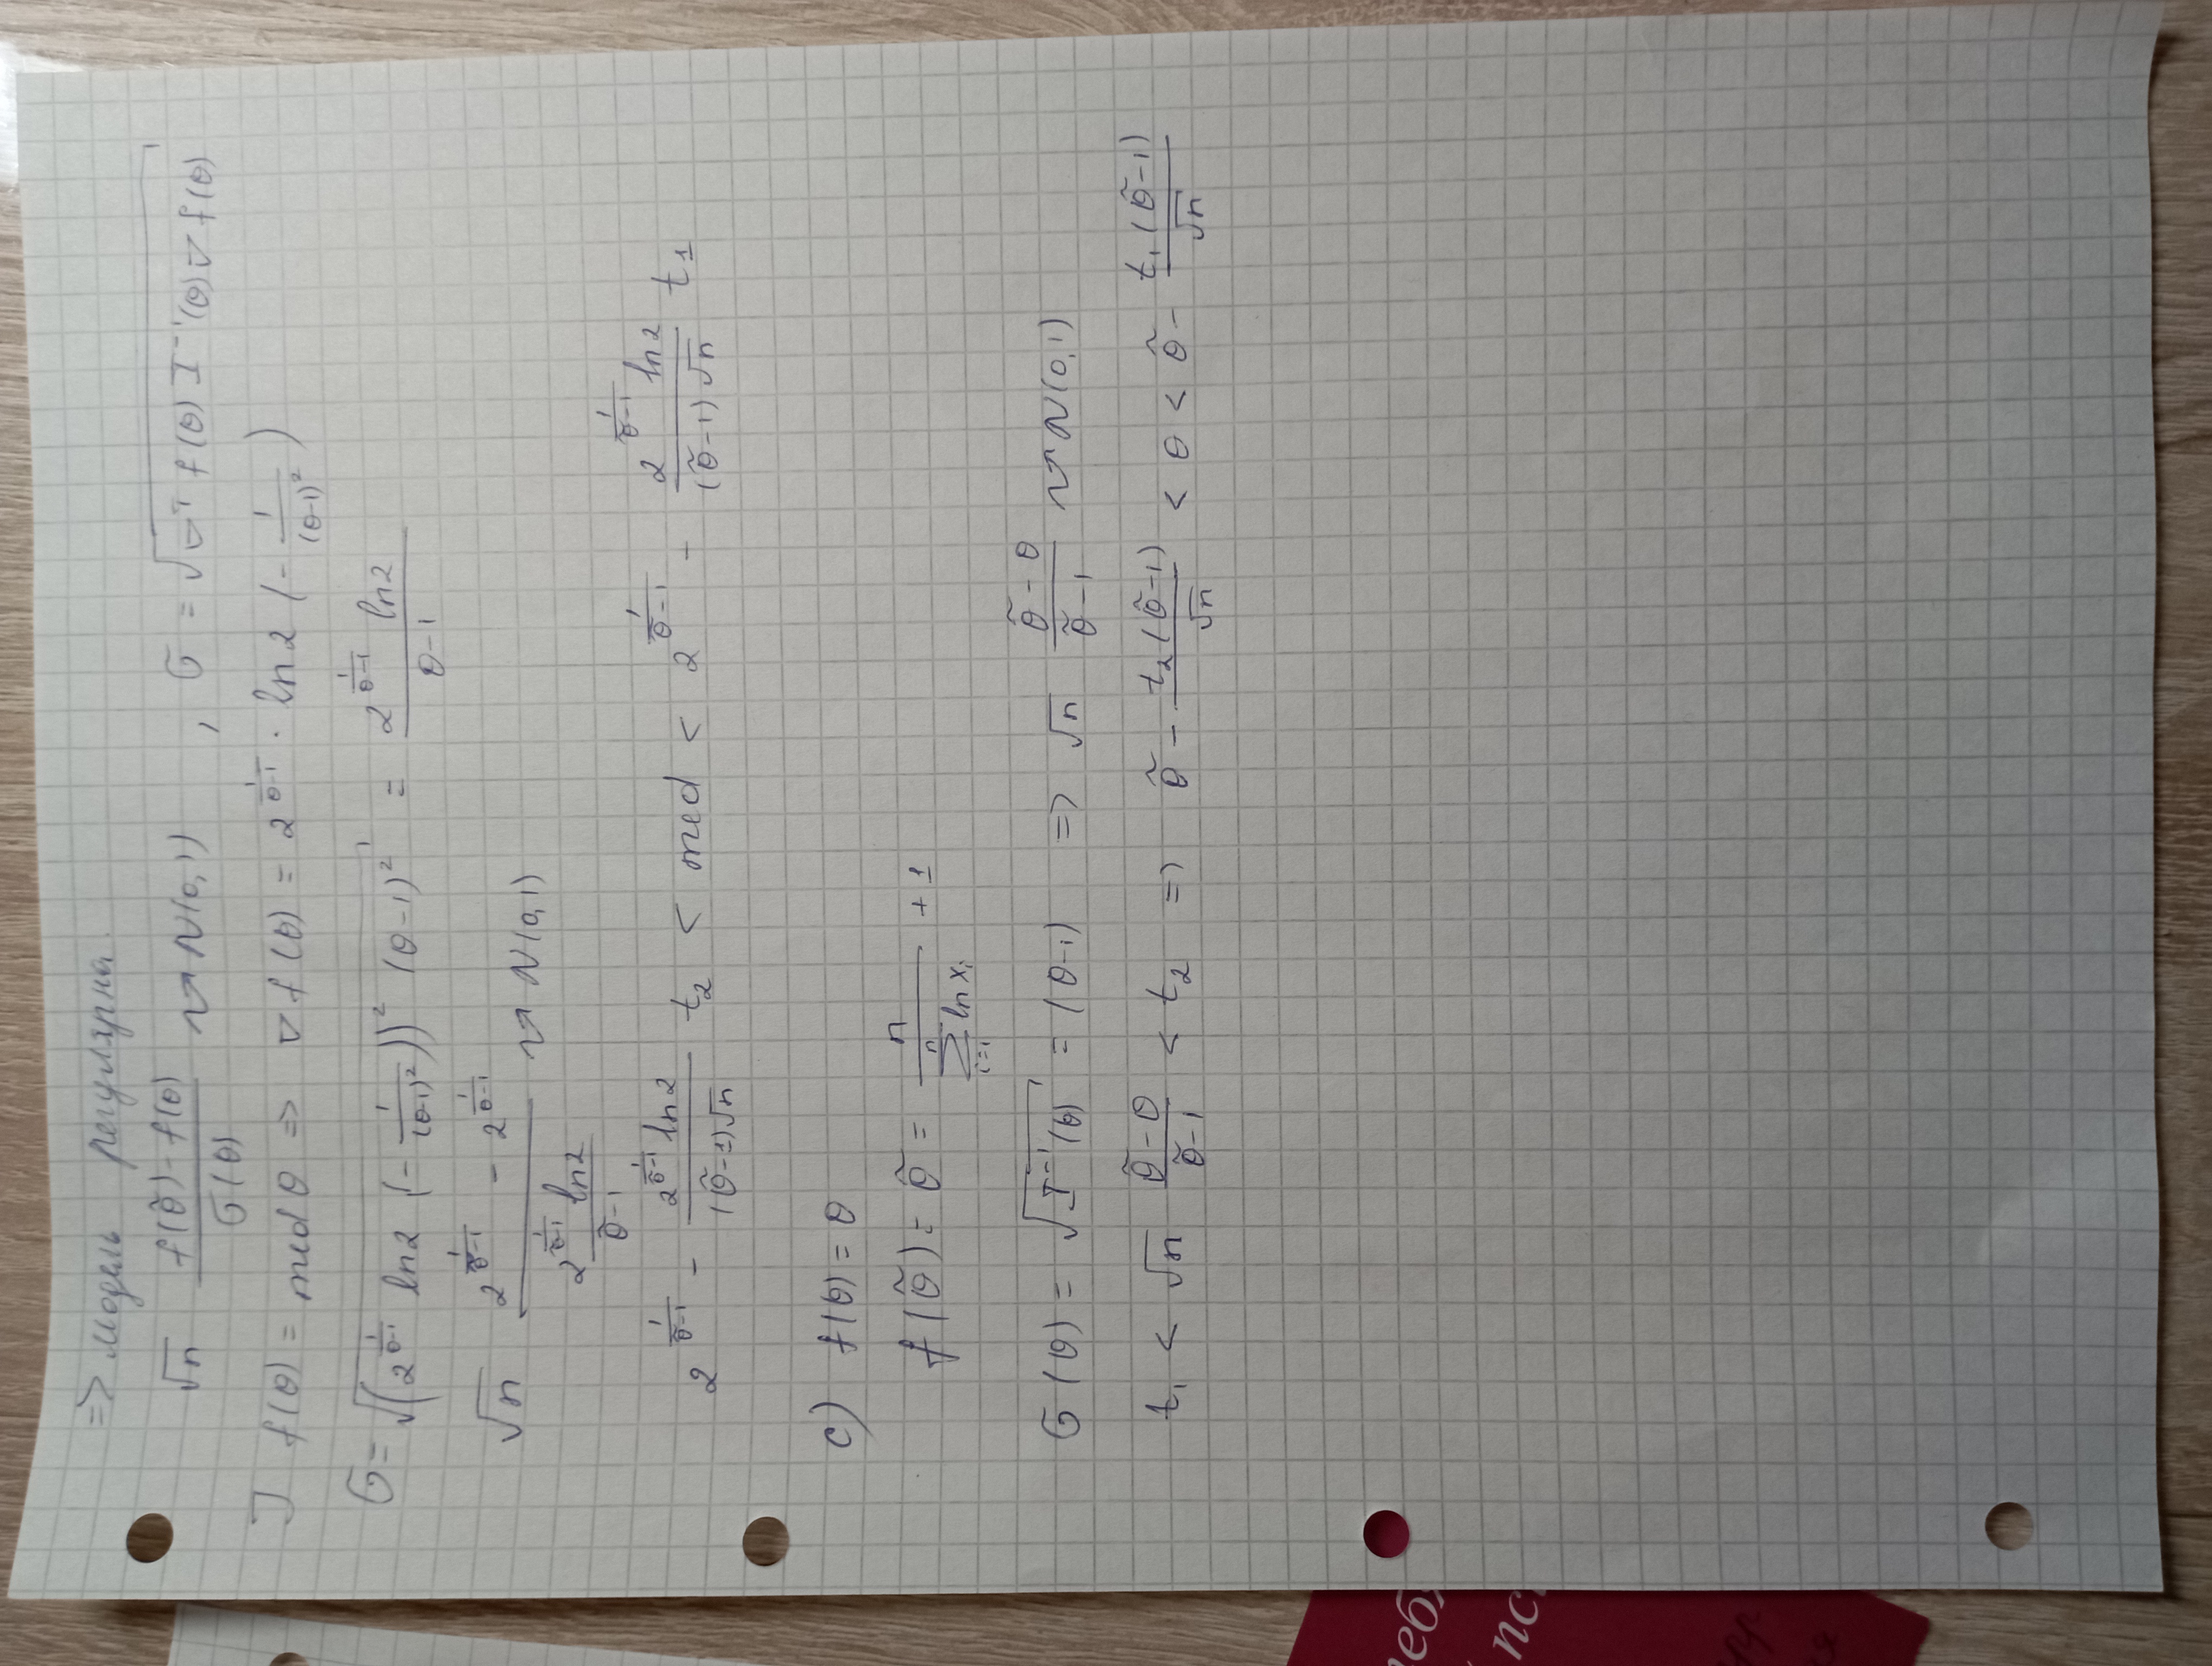 => модель регулярна.
√n (f(θ̃) - f(θ)) / σ(θ) ⇝ N(0,1) , σ = √(∇ᵀ f(θ) I⁻¹(θ) ∇ f(θ))
] f(θ) = med θ => ∇ f(θ) = 2^(1/(θ-1)) · ln2 (- 1/(θ-1)²)
σ = √((2^(1/(θ-1)) ln2 (- 1/(θ-1)²))² (θ-1)²) = (2^(1/(θ-1)) ln2) / (θ-1)
√n (2^(1/(θ̃-1)) - 2^(1/(θ-1))) / ((2^(1/(θ̃-1)) ln2) / (θ̃-1)) ⇝ N(0,1)
2^(1/(θ̃-1)) - (2^(1/(θ̃-1)) ln2) / ((θ̃-1)√n) t₂ < med < 2^(1/(θ̃-1)) - (2^(1/(θ̃-1)) ln2) / ((θ̃-1)√n) t₁
c) f(θ) = θ
f(θ̃) = θ̃ = n / (∑_{i=1}^{n} ln xᵢ) + 1
σ(θ) = √(I⁻¹(θ)) = (θ-1) => √n (θ̃ - θ) / (θ̃ - 1) ⇝ N(0,1)
t₁ < √n (θ̃ - θ) / (θ̃ - 1) < t₂ => θ̃ - (t₂(θ̃-1)) / √n < θ < θ̃ - (t₁(θ̃-1)) / √n